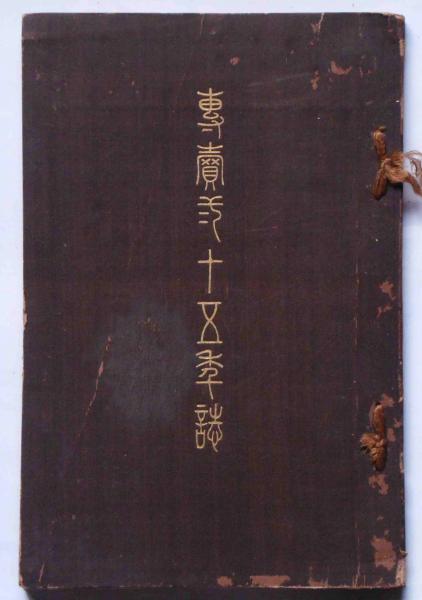 專賣弐十五年誌